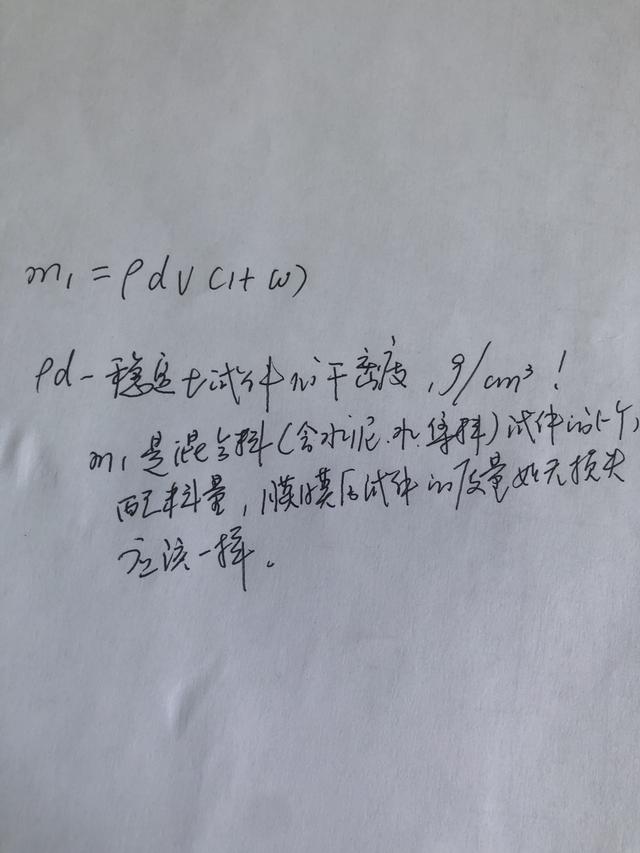 m₁ = ρd V (1+ω)
ρd - 稳定土试件的干密度，g/cm³！
m₁是混合料（含水泥.水.集料）试件的1个，
配料量，脱模后试件的质量如无损失
应该一样。